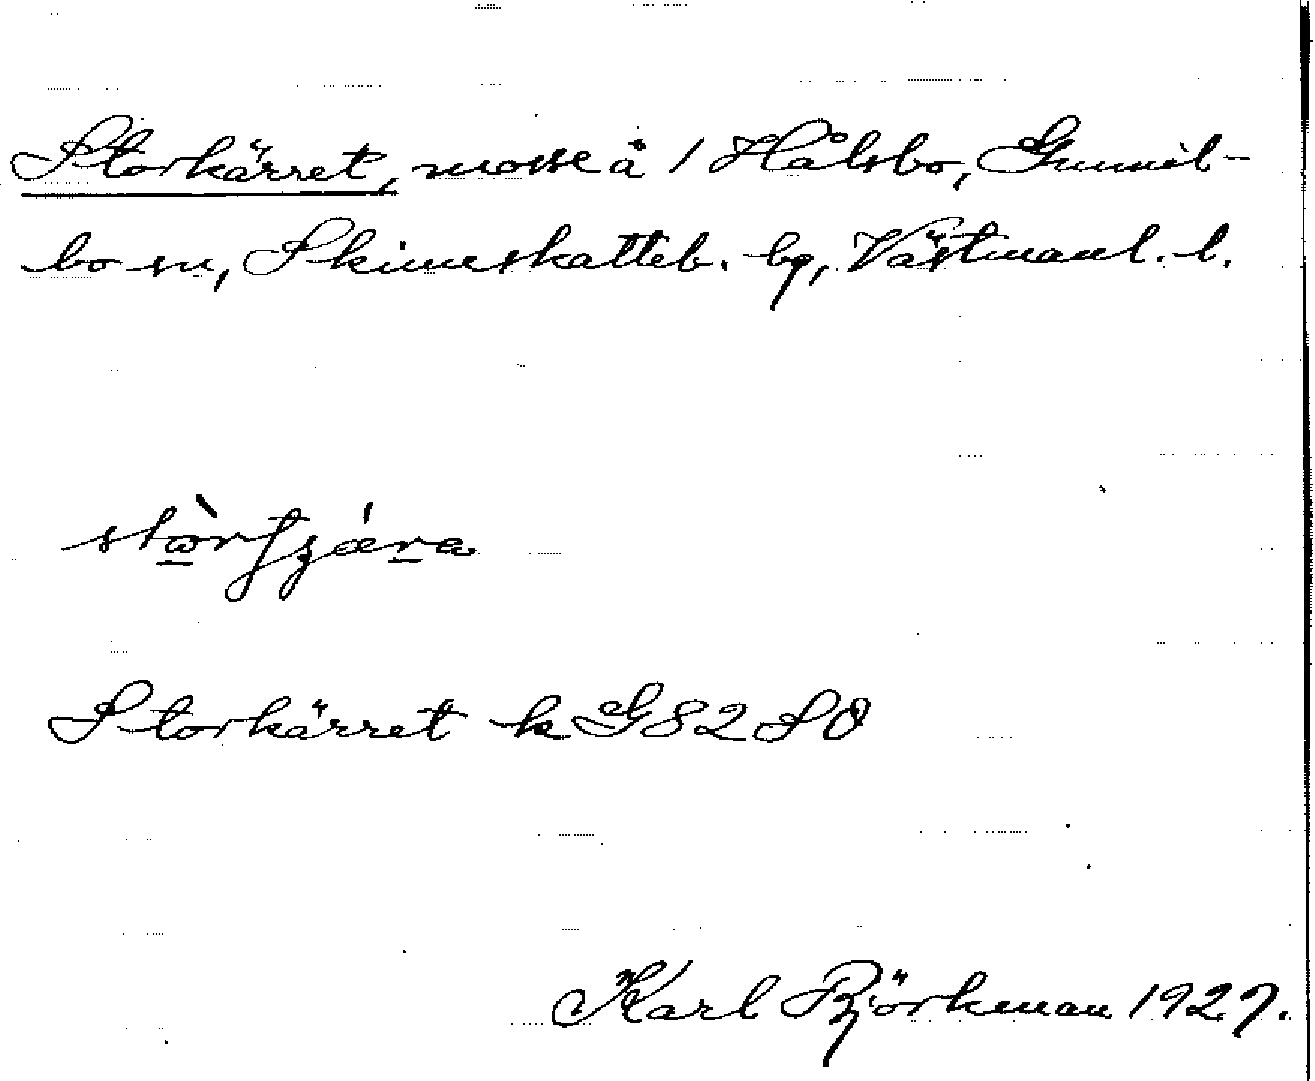 Storkärret, mosse å / Hålsbo, Gunnil-
bo sn, Skinnskatteb. bg, Västmanl. l.
Storkärret k G82 SO
Karl Björkman 1927.